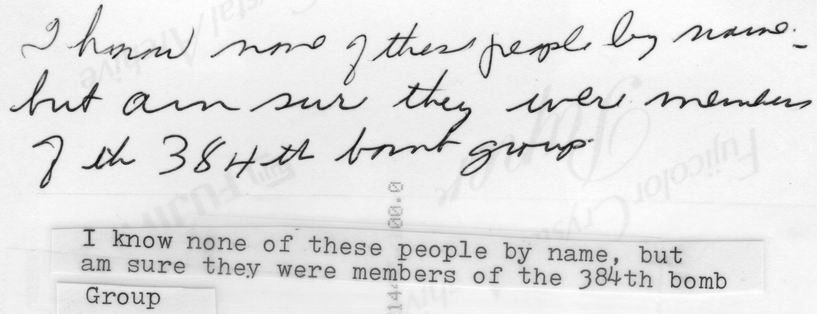 I know none of these people by name -
but am sure they were members
of th 384th bomb group.
I know none of these people by name, but
am sure they were members of the 384th bomb
Group
00.0
14